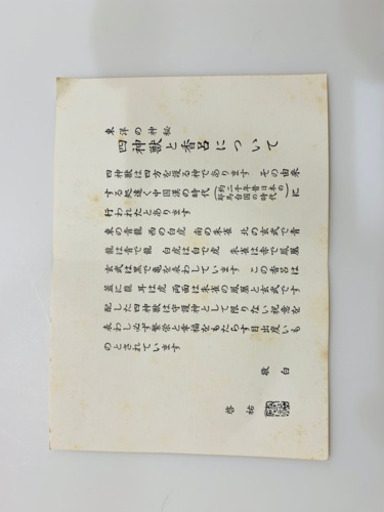 東洋の神秘
四神獣と香呂について
四神獣は四方を護る神であります その由来
する処遠く中国漢の時代(約二千年昔日本の耶馬台国の時代)に
行われたとあります
東の青龍 西の白虎 南の朱雀 北の玄武で青
龍は青で龍 白虎は白で虎 朱雀は赤で鳳凰
玄武は黒で亀を表わしています この香呂は
蓋に龍 耳は虎 両面は朱雀の鳳凰と玄武です
配した四神獣は守護神として限りない祝意を
表わし必ず繁栄と幸福をもたらす目出度いも
のとされています
敬白
啓祐